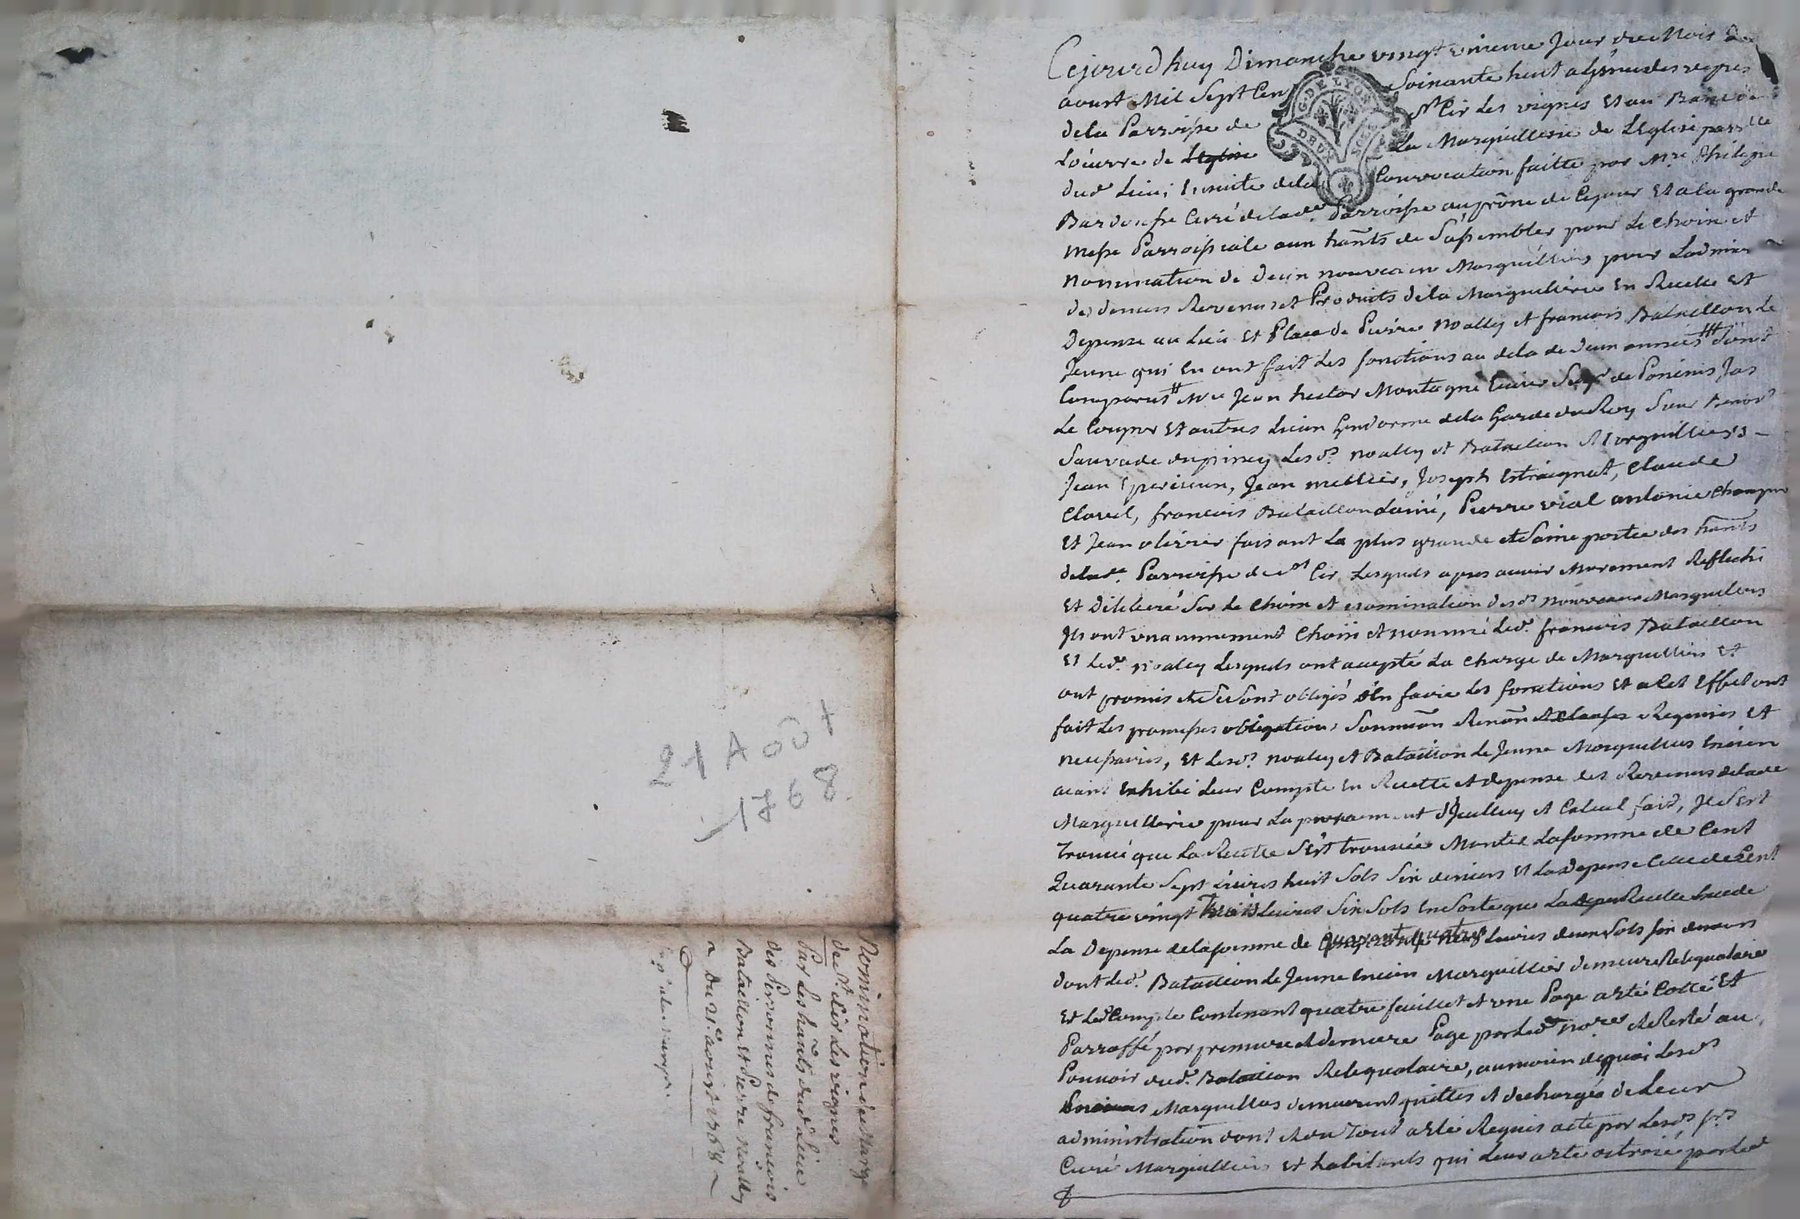 Cejourdhuy Dimanche vingt unieme Jour du Mois d
aoust Mil Sept Cen Soixante huit a Lissue des vepres
de la Parroisse de St Cir Les vignes Et au Banc de
Loeuvre de Leglise La Marguillerie de LEglise parr'lle
dud. Lieu; Ensuite dela Convocation faitte par Mre Philippe
Curé de lade. Parroisse au prône de Cejour Et a la grande
Messe Parroissialle aux hânts de Sassembler pour Le Choix et
nomination de deux nouveaux Marguilliers pour Ladmin
des deniers Revenus et Produits dela Marguillerie En Recette Et
Depense au Lieu Et Place de Pierre noally et francois Bataillon Le
Jeune qui En ont fait Les fonctions au dela de deux années dont
Comparus Mre Jean hector Montagne Ecuier Seigr de Poncins Jas
Le Coignet Et autres Lieux Gendarme dela Garde du Roy Sieur Benoit
Sauvade Lesds. noally et Bataillon Marguilliers
Jean Epercieux, Jean mellier, Joseph Estraignat, Claude
Clavel, francois Bataillon Lainé, Pierre vial antoine
Et Jean olivier faisant La plus grande et Saine partie des hânts
delade. Parroisse de st Cir Lesquels apres avoir Murement Reflechi
Et Delibéré Sur Le Choix et nomination desds nouveaux Marguilliers
Ils ont unanimement Choisi et nommé Led. francois Bataillon
Et Led. noally Lesquels ont accepté La Charge de Marguilliers Et
ont promis et Se Sont obligés den faire Les fonctions Et a Cet Effet ont
fait Les promesses obligations Soumôn Renôn et Clauses Requises Et
necessaires, Et Lesds. noally et Bataillon Le Jeune Marguilliers Encien
aiant Exhibé Leur Compte En Recette et depense des Revenus delade
Marguillerie pour La et Calcul fait, Il Sest
trouvé que La Recette Sest trouvée Monter La somme de Cent
Quarante Sept Livres huit Sols Six deniers Et La depense Celle de Cent
quatre vingt trois Livres Six Sols En Sorte que La Recette Excede
La Depense de la somme de quarante quatre Livres deux Sols Six deniers
dont Led. Bataillon Le Jeune Encien Marguillier demeure Reliquataire
Et Led Compte Contenant quatre feuillet et une Page a été Cotté Et
Parraffé par premiere et derniere Page par Led. et Resté au
Pouvoir dud. Bataillon Reliquataire, au moien de quoi Lesds
Enciens Marguilliers demeurent quittes et dechargés de Leur
administration dont et du Tout a été Requis acte par Lesds Srs
Curé Marguilliers Et habitants qui Leur a été octroié par Led
21 Août
1768
Nomination de Marg.
de St. Cir Les vignes
Par Les hânts dud. Lieu
des Personnes de francois
Bataillon et Pierre Noally
Du 21e. aoust 1768